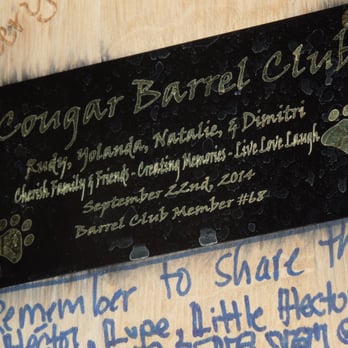 Cougar Barrel Club
Rudy, Yolanda, Natalie, & Dimitri
Cherish Family & Friends - Creating Memories - Live Love Laugh
September 22nd, 2014
Barrel Club Member #68
Remember to share th
Hector, Lupe, Little Hecto